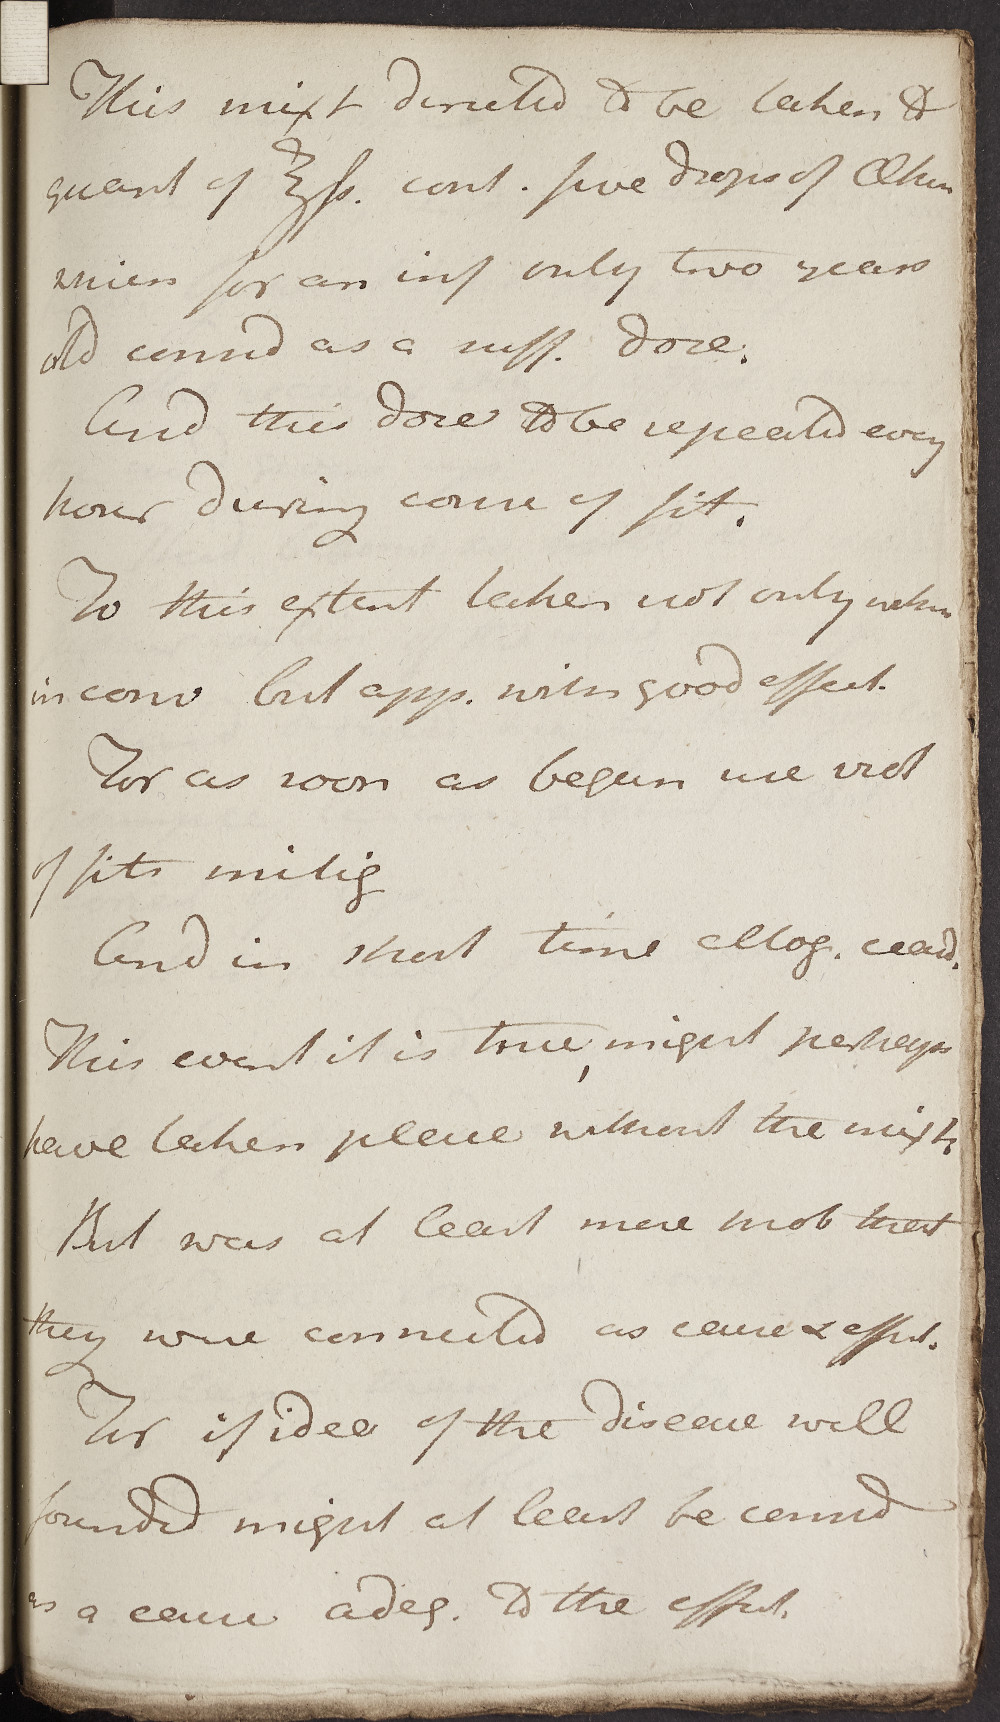 This mixt directed to be taken to
quant of ℥ss. cont. five drops of Æther
which for an inf only two years
old consid as a suff. dose.
And this dose to be repeated every
hour during course of fit.
To this extent taken not only when
in conv but app. with good effect.
For as soon as begun use viol
of fits mitig
And in short time altog. ceasd.
This event it is true, might perhaps
have taken place without the mixt
But was at least more prob that
they were connected as cause & effect.
For if idea of the disease well
founded might at least be consid
as a cause adeq. to the effect.